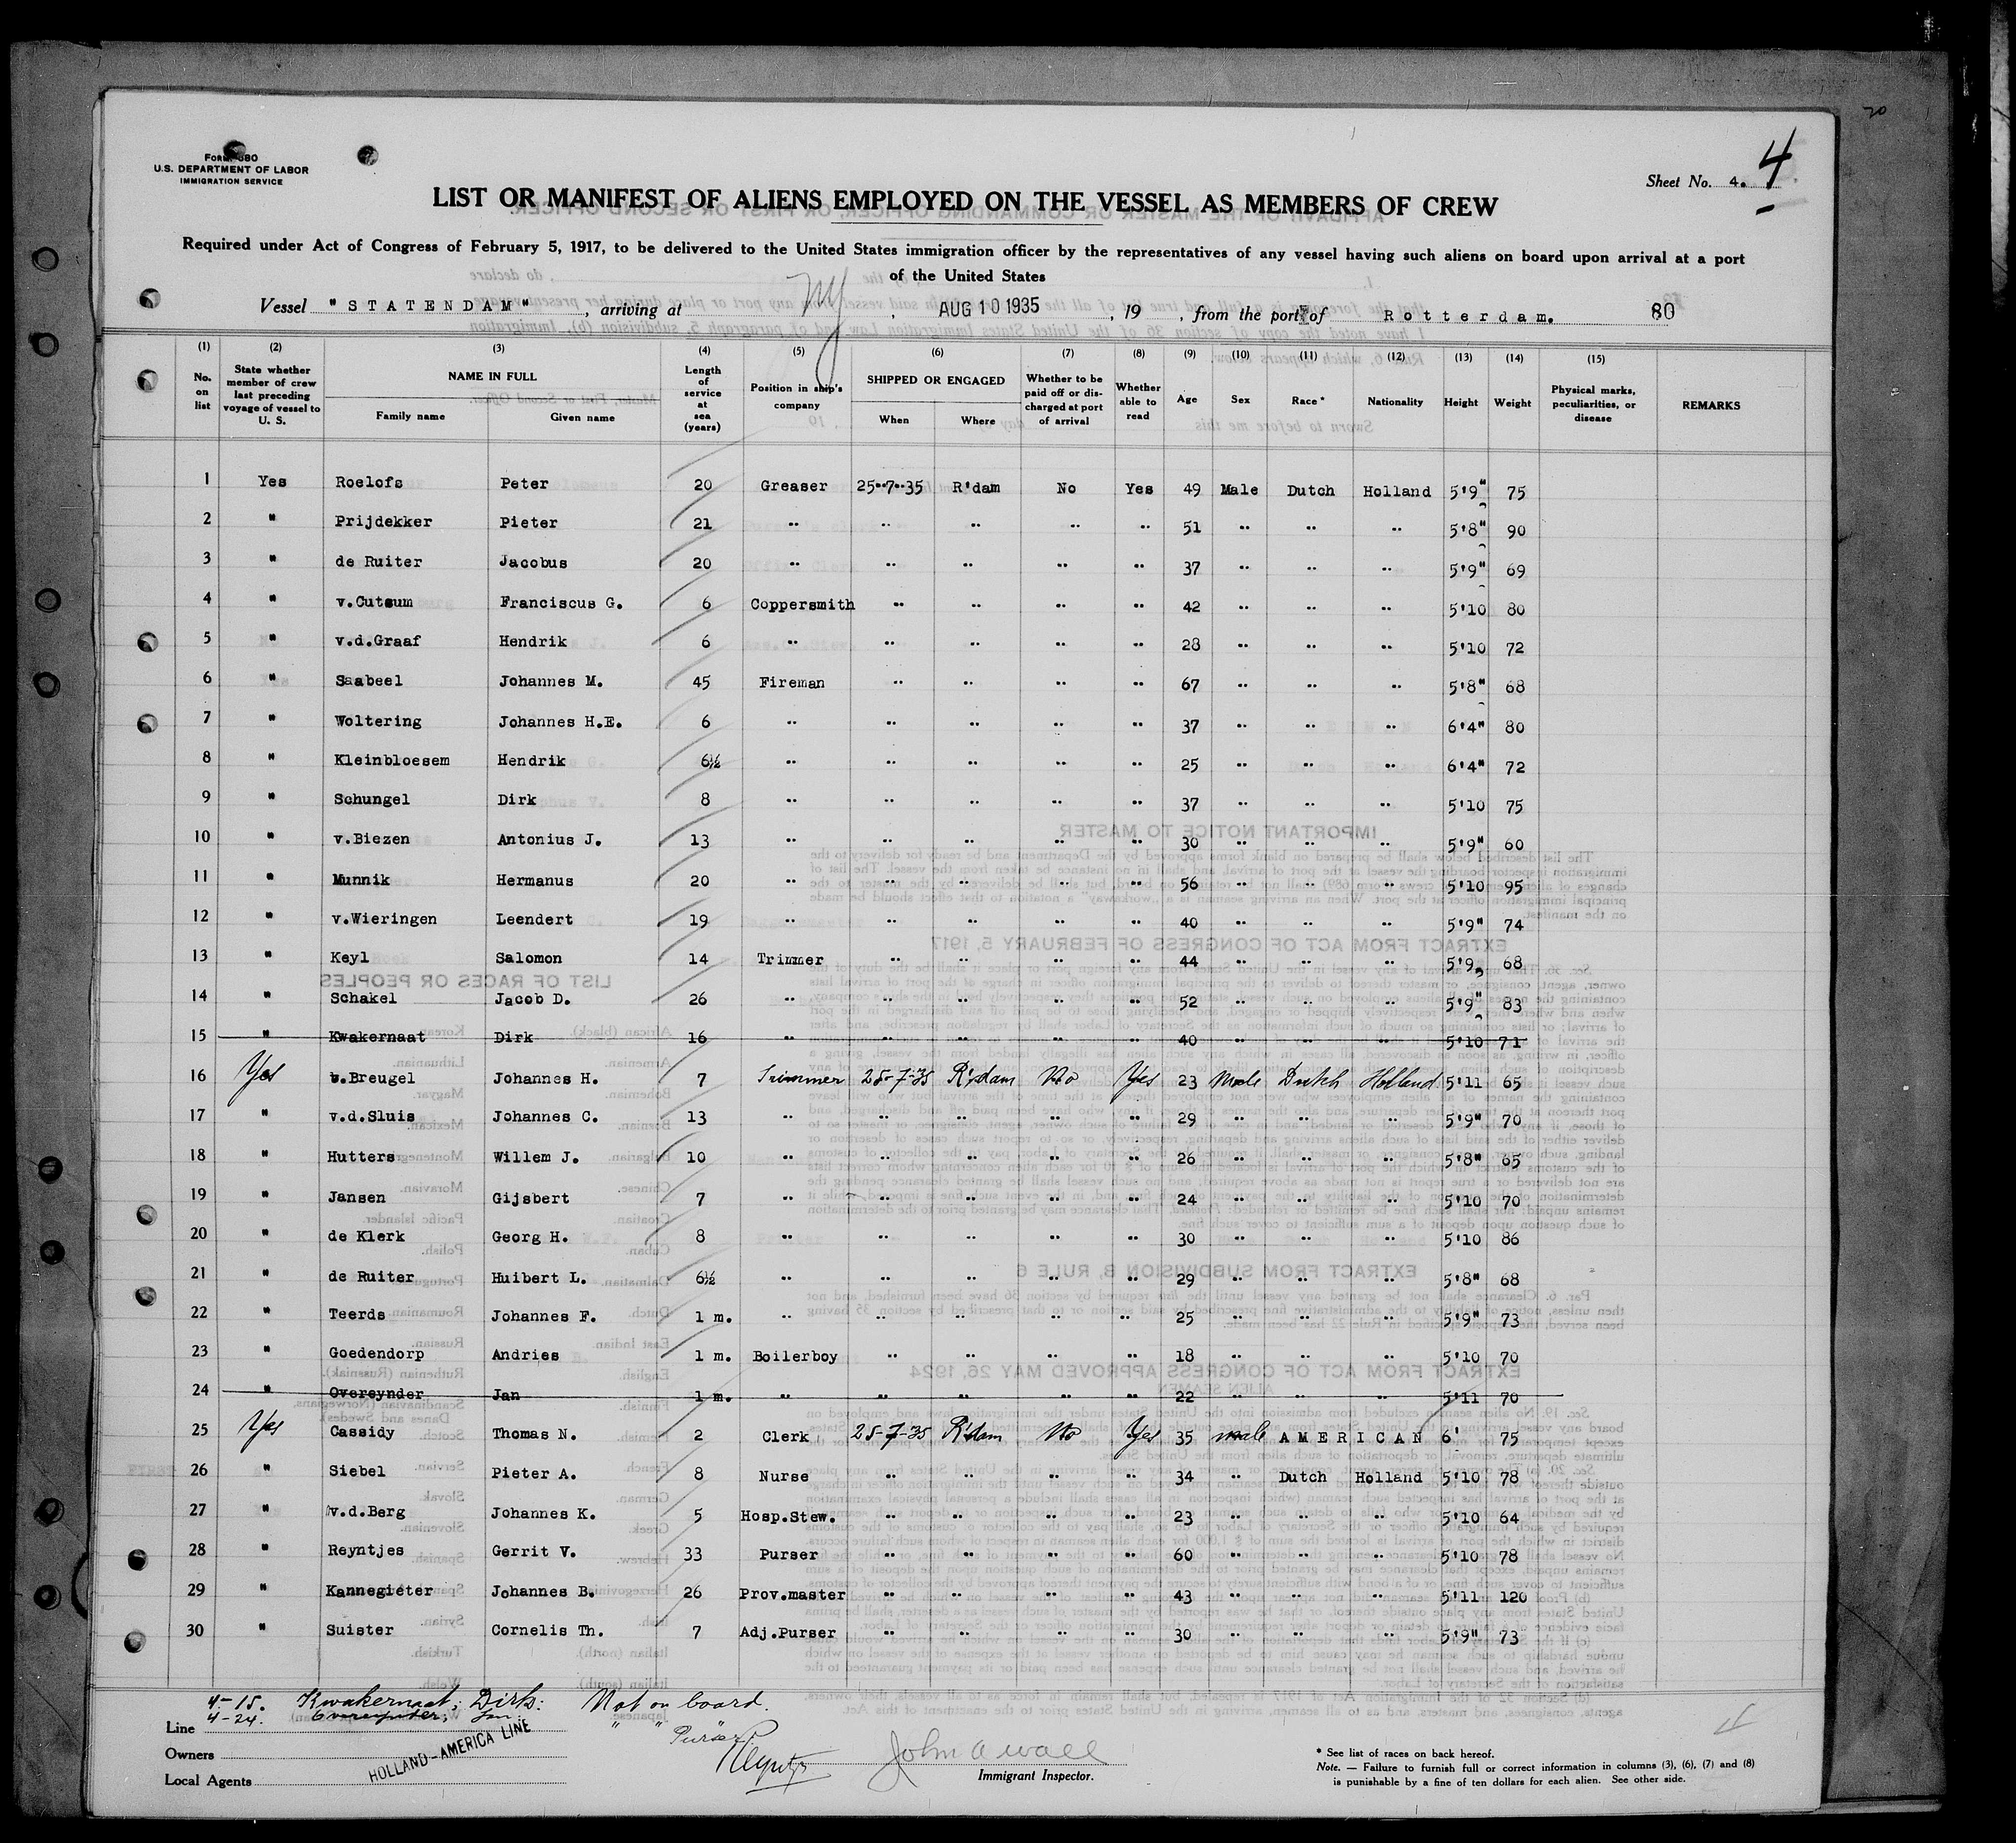 20
Form 680
U.S. DEPARTMENT OF LABOR
IMMIGRATION SERVICE
Sheet No. 4. 4
LIST OR MANIFEST OF ALIENS EMPLOYED ON THE VESSEL AS MEMBERS OF CREW
Required under Act of Congress of February 5, 1917, to be delivered to the United States immigration officer by the representatives of any vessel having such aliens on board upon arrival at a port
of the United States
Vessel "STATENDAM", arriving at NY, AUG 10 1935, 19 , from the port of Rotterdam. 80
(1) (2) (3) (4) (5) (6) (7) (8) (9) (10) (11) (12) (13) (14) (15)
No. on list State whether member of crew last preceding voyage of vessel to U. S. NAME IN FULL Family name Given name Length of service at sea (years) Position in ship's company SHIPPED OR ENGAGED When Where Whether to be paid off or discharged at port of arrival Whether able to read Age Sex Race* Nationality Height Weight Physical marks, peculiarities, or disease REMARKS
1 Yes Roelofs Peter 20 Greaser 25-7-35 R'dam No Yes 49 Male Dutch Holland 5'9" 75
2 " Prijdekker Pieter 21 " " " " " 51 " " " 5'8" 90
3 " de Ruiter Jacobus 20 " " " " " 37 " " " 5'9" 69
4 " v.Cutsum Franciscus G. 6 Coppersmith " " " " 42 " " " 5'10 80
5 " v.d.Graaf Hendrik 6 " " " " " 28 " " " 5'10 72
6 " Saabeel Johannes M. 45 Fireman " " " " 67 " " " 5'8" 68
7 " Woltering Johannes H.E. 6 " " " " " 37 " " " 6'4" 80
8 " Kleinbloesem Hendrik 6½ " " " " " 25 " " " 6'4" 72
9 " Schungel Dirk 8 " " " " " 37 " " " 5'10 75
10 " v.Biezen Antonius J. 13 " " " " " 30 " " " 5'9" 60
11 " Munnik Hermanus 20 " " " " " 56 " " " 5'10 95
12 " v.Wieringen Leendert 19 " " " " " 40 " " " 5'9" 74
13 " Keyl Salomon 14 Trimmer " " " " 44 " " " 5'9" 68
14 " Schakel Jacob D. 26 " " " " " 52 " " " 5'9" 83
15 " Kwakernaat Dirk 16 " " " " " 40 " " " 5'10 71
16 Yes v.Breugel Johannes H. 7 Trimmer 25-7-35 R'dam No Yes 23 Male Dutch Holland 5'11 65
17 " v.d.Sluis Johannes C. 13 " " " " " 29 " " " 5'9" 70
18 " Hutters Willem J. 10 " " " " " 26 " " " 5'8" 65
19 " Jansen Gijsbert 7 " " " " " 24 " " " 5'10 70
20 " de Klerk Georg H. 8 " " " " " 30 " " " 5'10 86
21 " de Ruiter Huibert L. 6½ " " " " " 29 " " " 5'8" 68
22 " Teerds Johannes F. 1 m. " " " " " 25 " " " 5'9" 73
23 " Goedendorp Andries 1 m. Boilerboy " " " " 18 " " " 5'10 70
24 " Overeynder Jan 1 m. " " " " " 22 " " " 5'11 70
25 Yes Cassidy Thomas N. 2 Clerk 25-7-35 R'dam No Yes 35 male AMERICAN 6' 75
26 " Siebel Pieter A. 8 Nurse " " " " 34 " Dutch Holland 5'10 78
27 " v.d.Berg Johannes K. 5 Hosp.Stew. " " " " 23 " " " 5'10 64
28 " Reyntjes Gerrit V. 33 Purser " " " " 60 " " " 5'10 78
29 " Kannegieter Johannes B. 26 Prov.master " " " " 43 " " " 5'11 120
30 " Suister Cornelis Th. 7 Adj.Purser " " " " 30 " " " 5'9" 73
4-15. Kwakernaat, Dirk: Not on board.
4-24. Overeynder, Jan " "
Line
Owners HOLLAND-AMERICA LINE
Local Agents
Purser
John A Wall
Immigrant Inspector.
* See list of races on back hereof.
Note. — Failure to furnish full or correct information in columns (3), (6), (7) and (8)
is punishable by a fine of ten dollars for each alien. See other side.